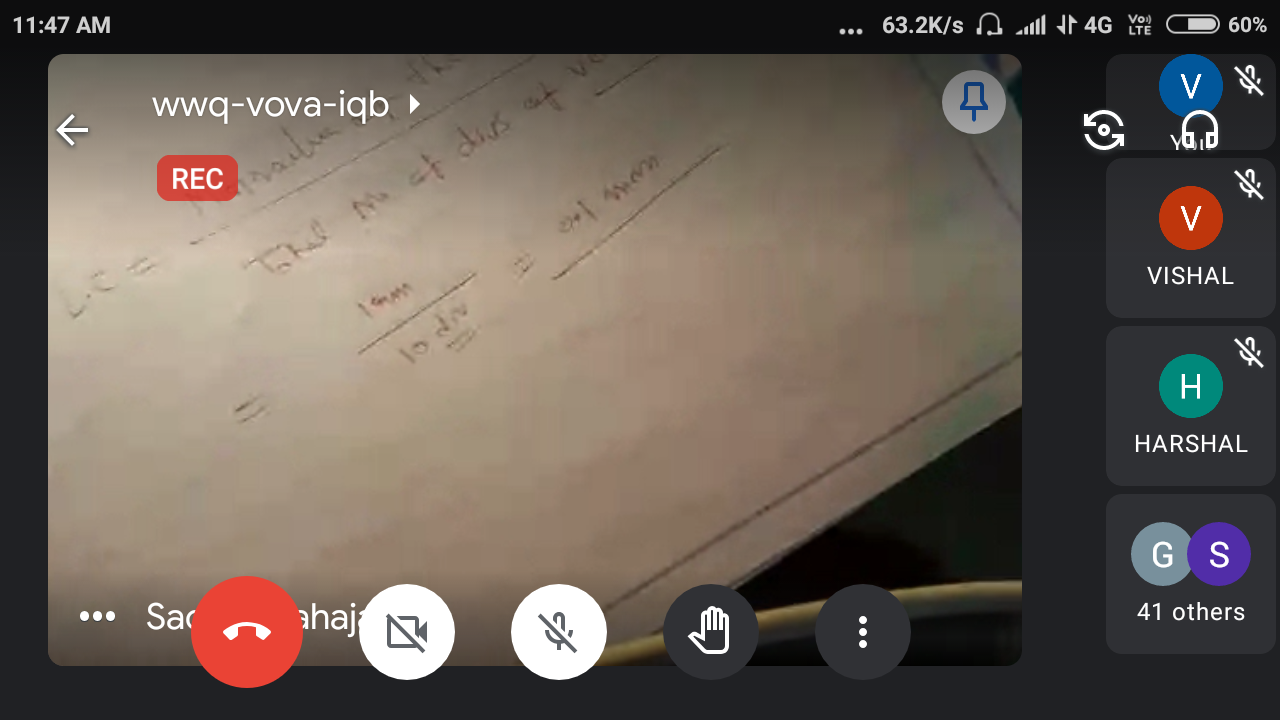 11:47 AM
... 63.2K/s 4G Vo)) LTE 60%
wwq-vova-iqb
REC
L.C =
Total No of divs of
1mm
10 div
= 0.1 mm
=
V
You
V
VISHAL
H
HARSHAL
G S
41 others